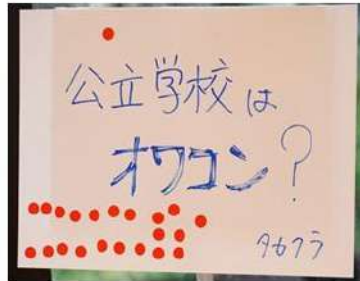 公立学校は
オワコン?
タカクラ